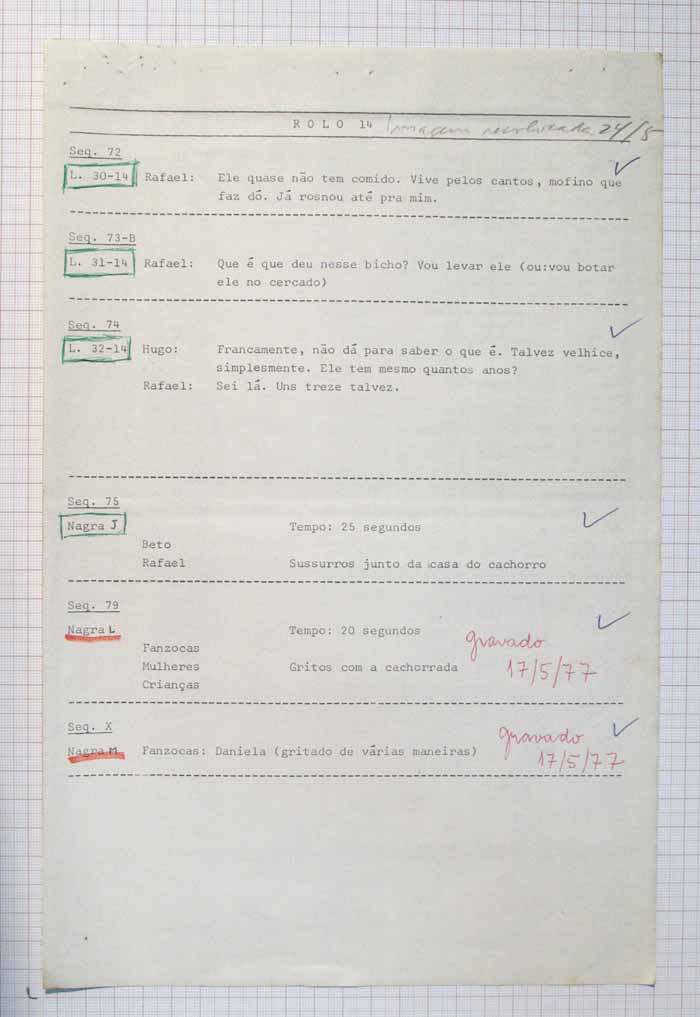 R O L O 14 Imagem 24/5
Seq. 72
L. 30-14 Rafael: Ele quase não tem comido. Vive pelos cantos, mofino que
faz dó. Já rosnou até pra mim.
Seq. 73-B
L. 31-14 Rafael: Que é que deu nesse bicho? Vou levar ele (ou:vou botar
ele no cercado)
Seq. 74
L. 32-14 Hugo: Francamente, não dá para saber o que é. Talvez velhice,
simplesmente. Ele tem mesmo quantos anos?
Rafael: Sei lá. Uns treze talvez.
Seq. 75
Nagra J Tempo: 25 segundos
Beto
Rafael Sussurros junto da casa do cachorro
Seq. 79
Nagra L Tempo: 20 segundos gravado
Fanzocas
Mulheres Gritos com a cachorrada 17/5/77
Crianças
Seq. X
Nagra M Fanzocas: Daniela (gritado de várias maneiras) gravado
17/5/77